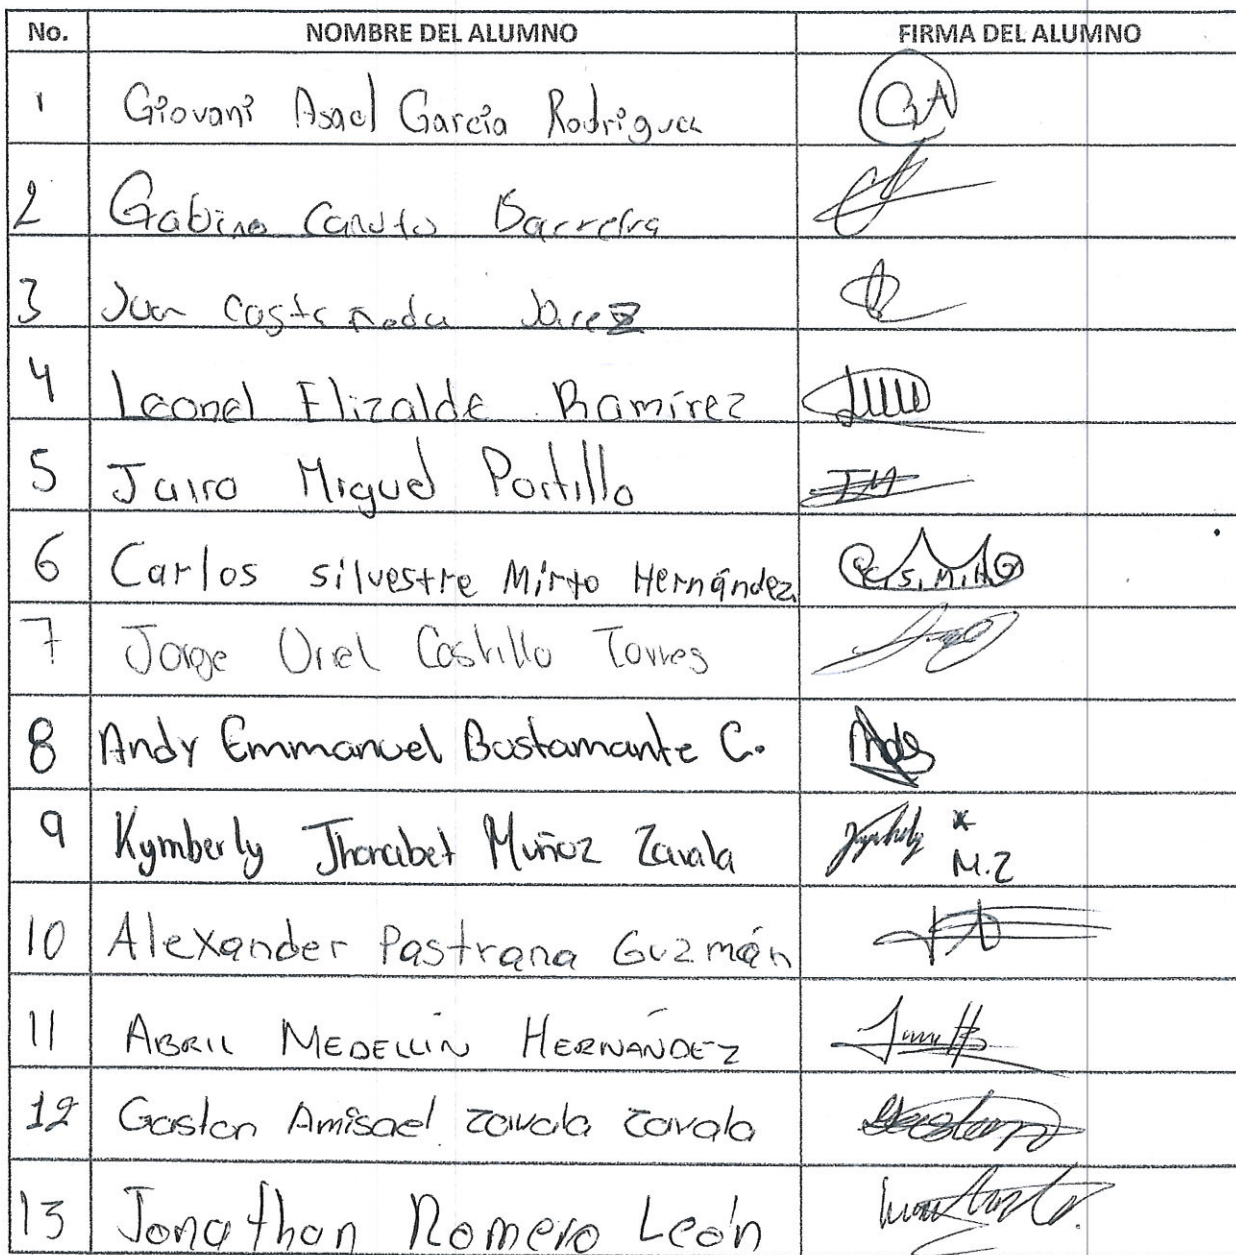 No. NOMBRE DEL ALUMNO FIRMA DEL ALUMNO
1 Giovani Asael García Rodriguez GA
2 Gabino Canuto Barrera
3 Juan Castañeda Juarez
4 Leonel Elizalde Ramírez
5 Jairo Miguel Portillo JM
6 Carlos silvestre Mirto Hernández C.S.M.H
7 Jorge Uriel Castillo Torres
8 Andy Emmanuel Bustamante C.
9 Kymberly Jharabet Muñoz Zavala M.Z
10 Alexander Pastrana Guzmán
11 ABRIL MEDELLIN HERNÁNDEZ
12 Gaston Amisael zavala zavala Gaston
13 Jonathan Romero León